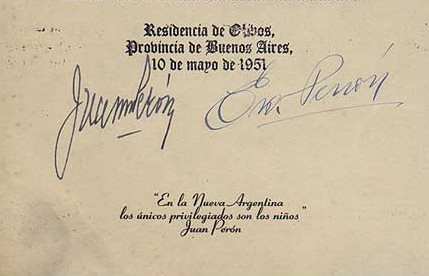 Residencia de Olivos,
Provincia de Buenos Aires,
10 de mayo de 1951
Juan Perón
Eva Perón
"En la Nueva Argentina
los únicos privilegiados son los niños"
Juan Perón